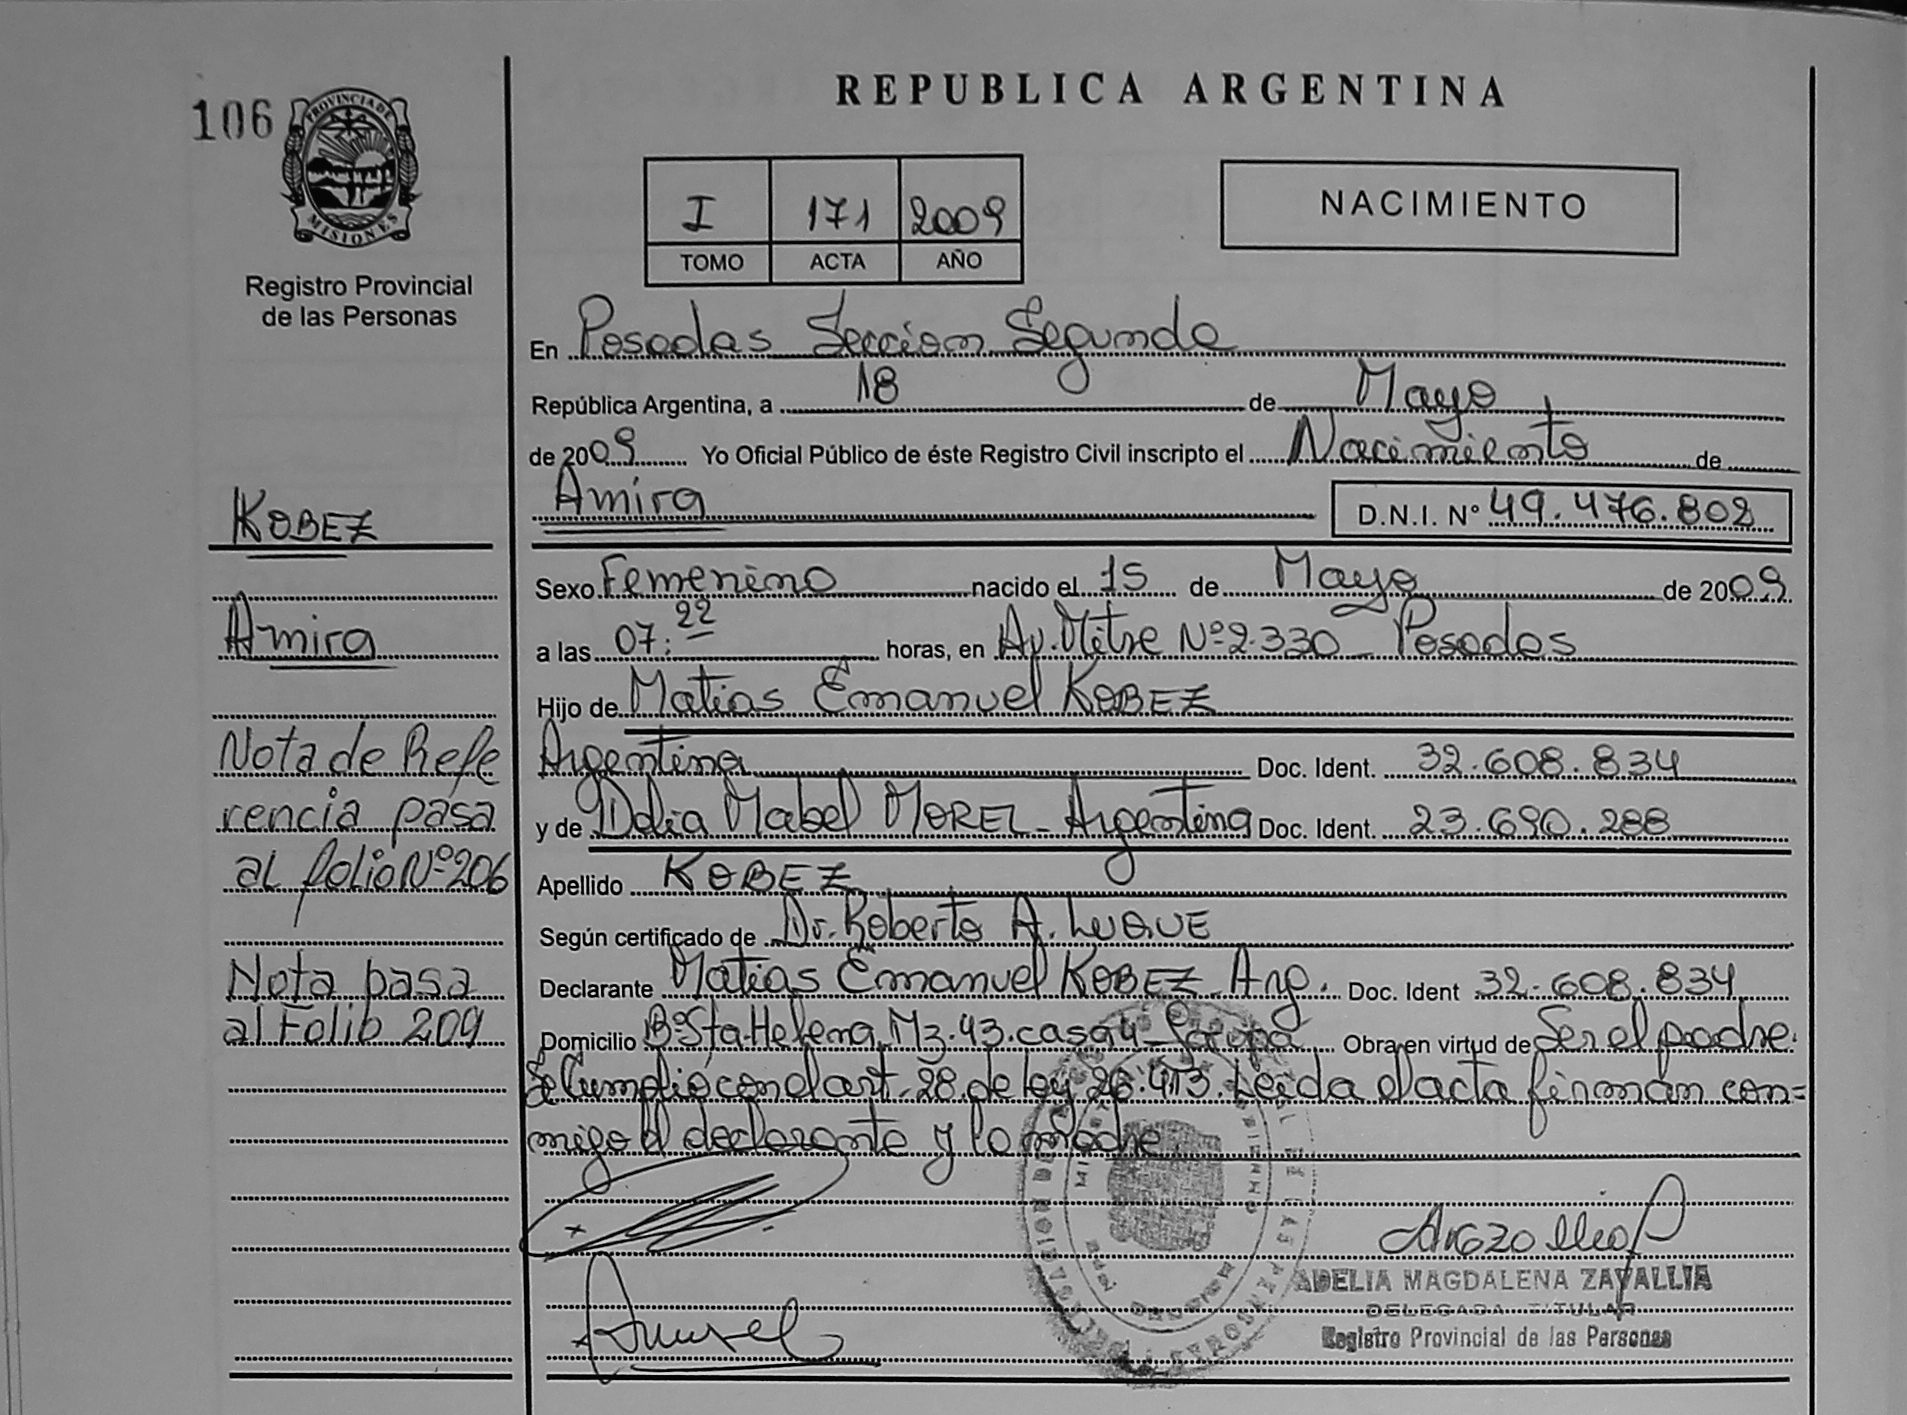 REPUBLICA ARGENTINA
106
PROVINCIA DE
MISIONES
Registro Provincial
de las Personas
I 171 2009
TOMO ACTA AÑO
NACIMIENTO
En Posadas Seccion Segunda
República Argentina, a 18 de Mayo
de 2009 Yo Oficial Público de éste Registro Civil inscripto el Nacimiento de
Amira D.N.I. N° 49.476.802
KOBEZ
Amira
Nota de Refe
rencia pasa
al folio Nº 206
Nota pasa
al Folio 209
Sexo Femenino nacido el 15 de Mayo de 2009
a las 07:22 horas, en Av. Mitre Nº 2.330 - Posadas
Hijo de Matias Emanuel KOBEZ
Argentina Doc. Ident. 32.608.834
y de Delia Mabel MOREL - Argentina Doc. Ident. 23.690.288
Apellido KOBEZ
Según certificado de Dr. Roberto A. LUQUE
Declarante Matias Emanuel KOBEZ - Arg. Doc. Ident 32.608.834
Domicilio Bº Sta. Helena Mz. 43. casa 4 - Garupá Obra en virtud de Ser el padre.
Se Cumplió con el art. 28. de ley 26.413. Leida el acta firman con=
migo el declarante y la madre.
ADELIA MAGDALENA ZAVALLIA
DELEGADA TITULAR
Registro Provincial de las Personas